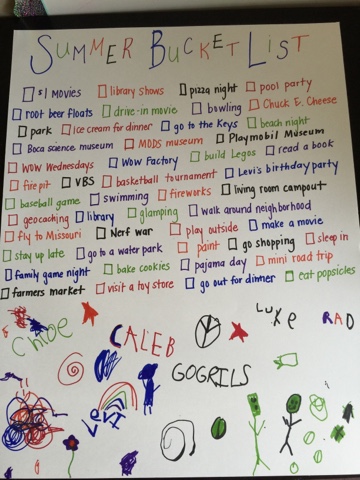 SUMMER BUCKET LIST
$1 MOVIES library shows pizza night pool party
root beer floats drive-in movie bowling Chuck E. Cheese
park ice cream for dinner go to the Keys beach night
Boca science museum MODS museum Playmobil Museum
WOW Wednesdays WOW Factory build Legos read a book
fire pit VBS basketball tournament Levi's birthday party
baseball game swimming fireworks living room campout
geocaching library glamping walk around neighborhood
fly to Missouri Nerf war play outside make a movie
stay up late go to a water park paint go shopping sleep in
family game night bake cookies pajama day mini road trip
farmers market visit a toy store go out for dinner eat popsicles
Chloe CALEB Luke RAD
LeVI GOGRILS